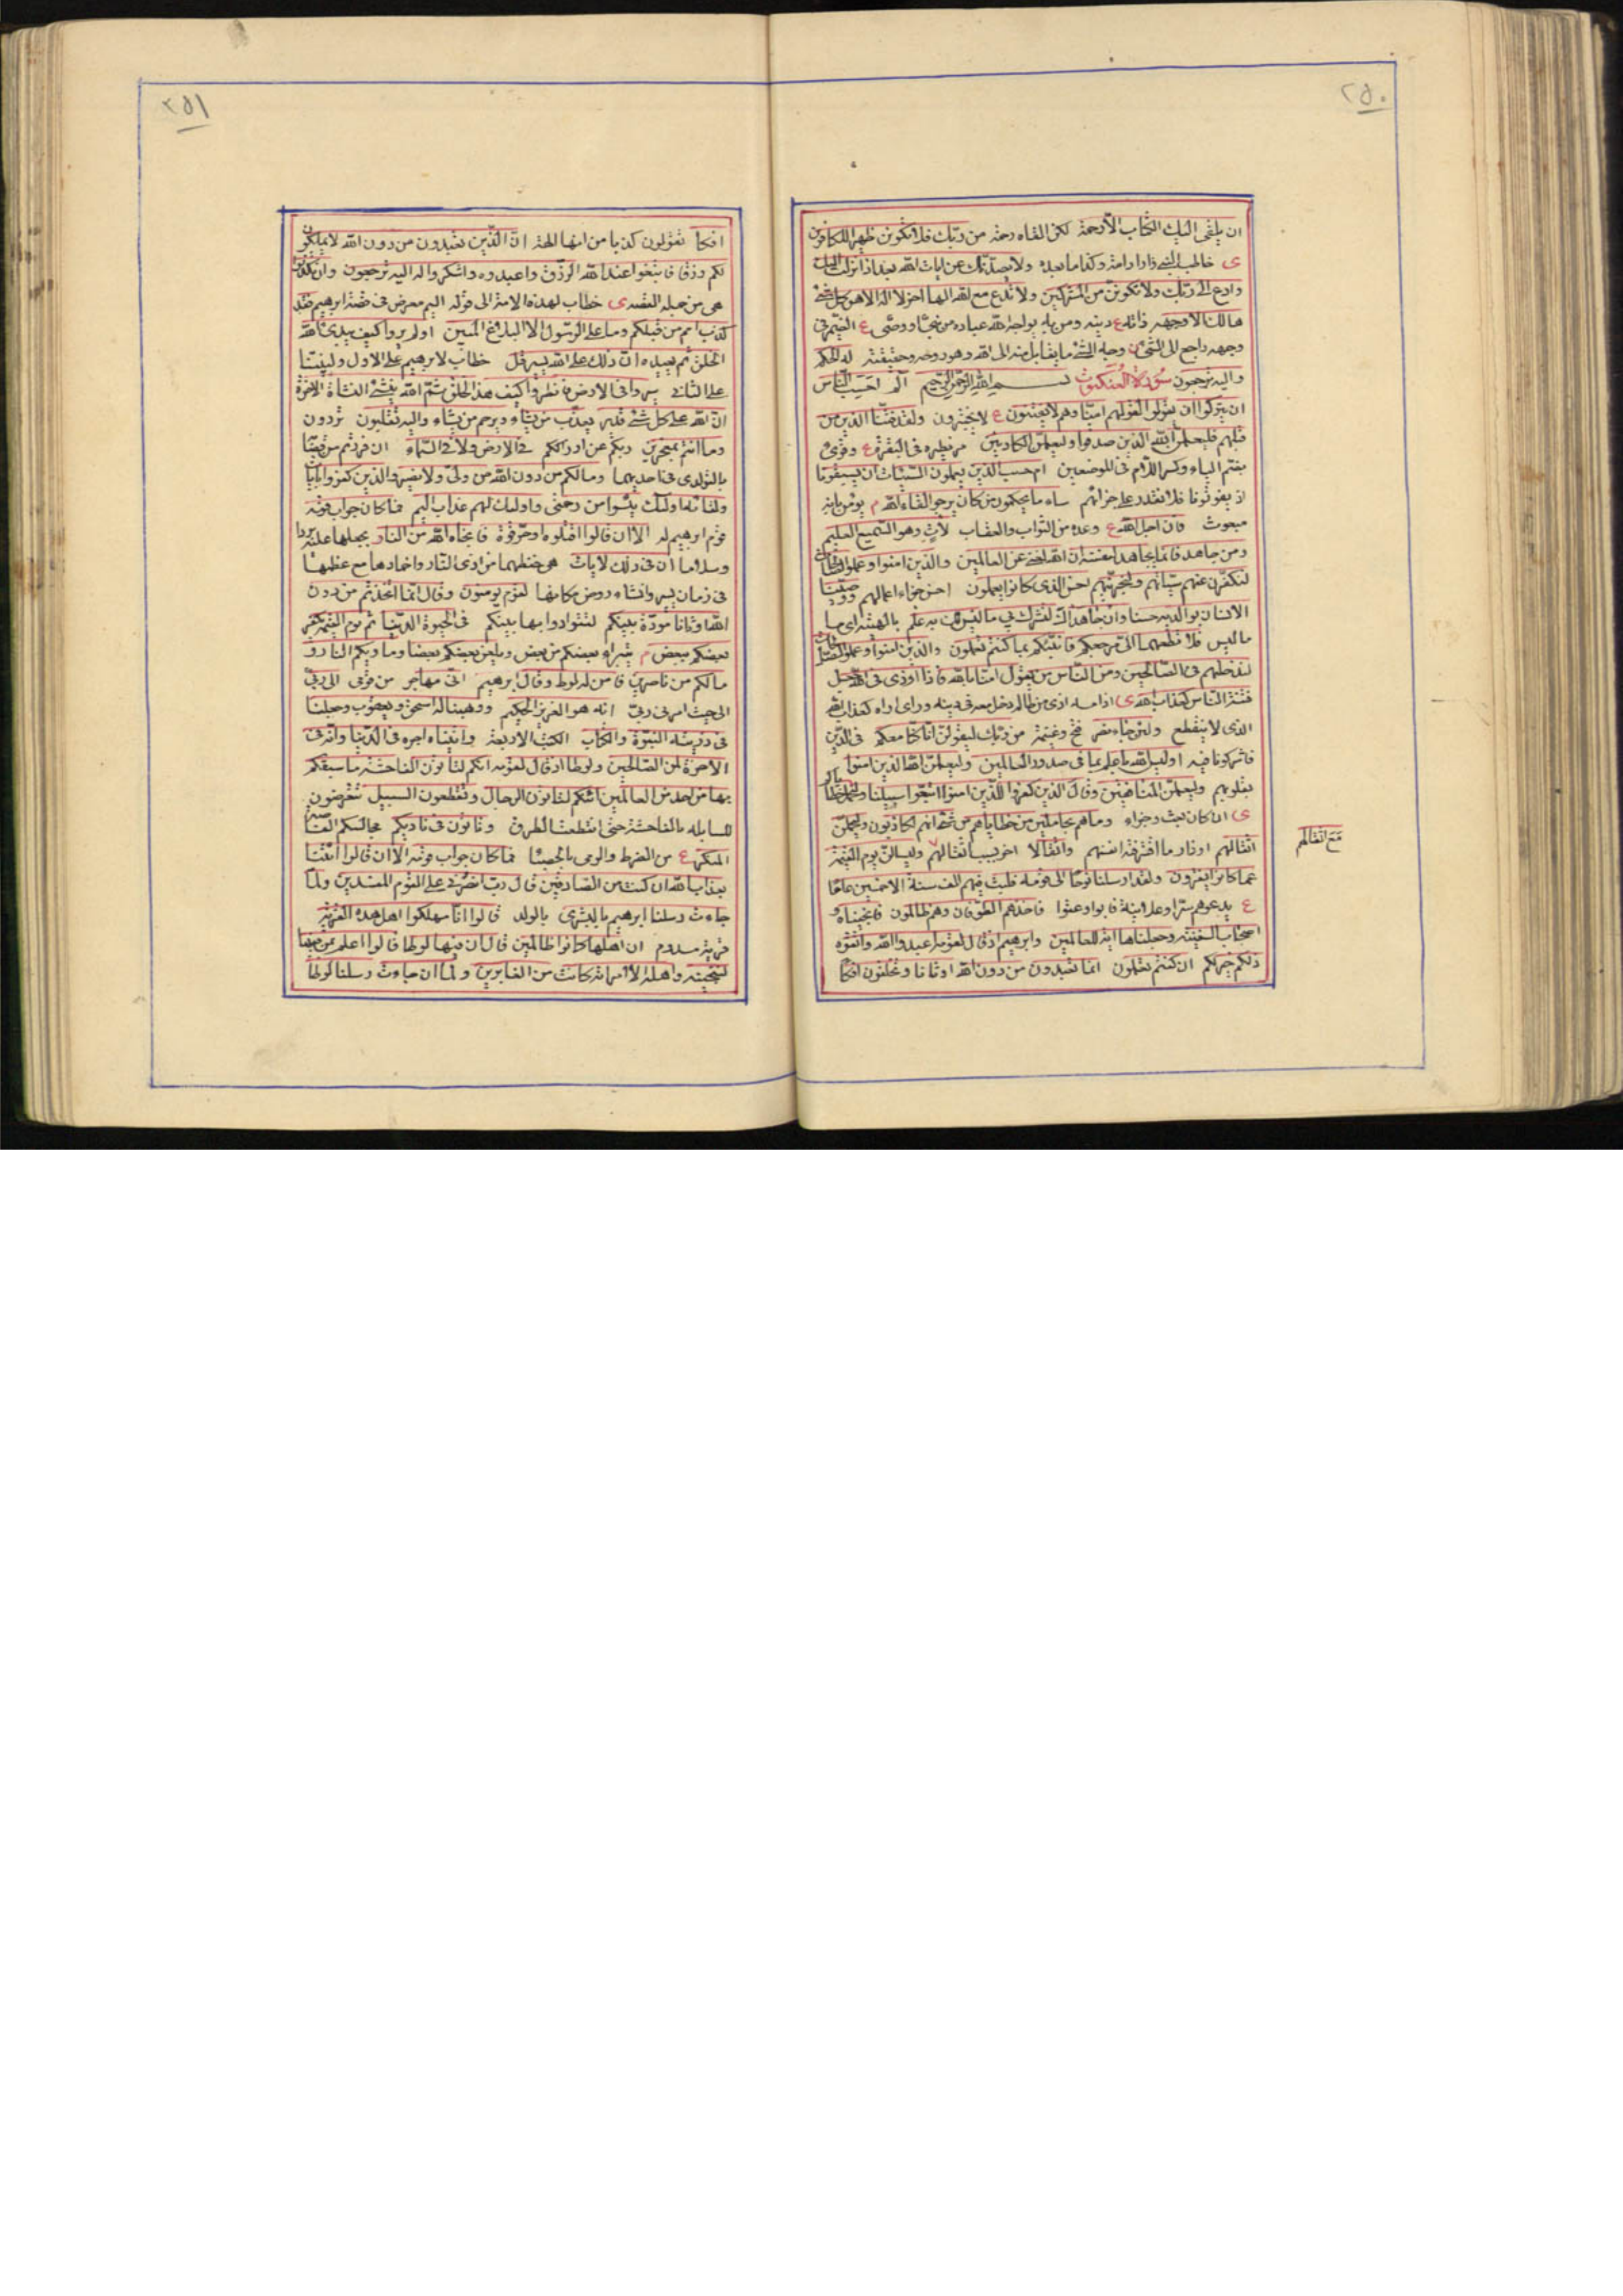 ٢٥٠
ان يلقى اليك الكتاب الا رحمة لكن القاه رحمة من ربك فلا تكونن ظهيرا للكافرين
ى خاطب النبى واراد امته وكذا ما بعده ولا يصدنك عن ايات الله بعد اذ انزلت اليك
وادع الى ربك ولا تكونن من المشركين ولا تدع مع الله الها اخر لا اله الا هو كل شئ
هالك الا وجهه ذاته ع دينه ومن يؤتى الله عباده من نبى او وصى ع الضمير فى
وجهه راجع الى الشئ ن وجه الشئ ما يقابل منه الى الله وهو روحه وحقيقته له الحكم
واليه ترجعون سورة العنكبوت بسم الله الرحمن الرحيم الم احسب الناس
ان يتركوا ان يقولوا لقولهم امنا وهم لا يفتنون ع لا يختبرون ولقد فتنا الذين من
قبلهم فليعلمن الله الذين صدقوا وليعلمن الكاذبين مر نظيره فى البقرة ع وقرئ
بضم الياء وكسر اللام فى الموضعين ام حسب الذين يعملون السيئات ان يسبقونا
ان يفوتونا فلا نقدر على جزائهم ساء ما يحكمون من كان يرجو لقاء الله م يؤمن بانه
مبعوث فان اجل الله ع وعده من الثواب والعقاب لات وهو السميع العليم
ومن جاهد فانما يجاهد لنفسه ان الله لغنى عن العالمين والذين امنوا وعملوا الصالحات
لنكفرن عنهم سيئاتهم ولنجزينهم احسن الذى كانوا يعملون احسن جزاء اعمالهم ووصينا
الانسان بوالديه حسنا وان جاهداك لتشرك بى ما ليس لك به علم بالهيته اى ما
ما ليس فلا تطعهما الى مرجعكم فانبئكم بما كنتم تعملون والذين امنوا وعملوا الصالحات
لندخلنهم فى الصالحين ومن الناس من يقول امنا بالله فاذا اوذى فى الله جعل
فتنة الناس كعذاب الله ى اذا مسه اذى من ظالم دخل معه فى دينه وراى اذاه كعذاب الله
الذى لا ينقطع ولئن جاء نصر فتح وغنيمة من ربك ليقولن انا كنا معكم فى الدين
فاشركونا فيه اوليس الله باعلم بما فى صدور العالمين وليعلمن الله الذين امنوا
بقلوبهم وليعلمن المنافقين وقال الذين كفروا للذين امنوا اتبعوا سبيلنا ولنحمل خطاياكم
ى ان كان بعث وجزاء وما هم بحاملين من خطاياهم من شئ انهم لكاذبون وليحملن
اثقالهم اوزار ما اقترفته انفسهم واثقالا اخر بسبب اثقالهم وليسالن يوم القيمة
مع اثقالهم
عما كانوا يفترون ولقد ارسلنا نوحا الى قومه فلبث فيهم الف سنة الا خمسين عاما
ع يدعوهم سرا وعلانية فابوا وعتوا فاخذهم الطوفان وهم ظالمون فانجيناه و
اصحاب السفينة وجعلناها اية للعالمين وابرهيم اذ قال لقومه اعبدوا الله واتقوه
ذلكم خير لكم ان كنتم تعلمون انما تعبدون من دون الله اوثانا وتخلقون افكا
٢٥١
افكا تقولون كذبا من انها الهة ان الذين تعبدون من دون الله لا يملكون
لكم رزقا فابتغوا عند الله الرزق واعبدوه واشكروا له اليه ترجعون وان تكذبوا
هى من جملة القصة ى خطاب لهذه الامة الى قوله اليم معرض فى قصة ابرهيم فقد
كذب امم من قبلكم وما على الرسول الا البلاغ المبين اولم يروا كيف يبدئ الله
الخلق ثم يعيده ان ذلك على الله يسير قل خطاب لابرهيم على الاول ولنبينا
على الثانى سيروا فى الارض فانظروا كيف بدا الخلق ثم الله ينشئ النشاة الاخرة
ان الله على كل شئ قدير يعذب من يشاء ويرحم من يشاء واليه تقلبون تردون
وما انتم بمعجزين ربكم عن ادراككم فى الارض ولا فى السماء ان فررتم من قضائه
بالتوارى فى احديهما وما لكم من دون الله من ولى ولا نصير والذين كفروا بايات
ولقائه اولئك يئسوا من رحمتى واولئك لهم عذاب اليم فما كان جواب قومه
قوم ابرهيم له الا ان قالوا اقتلوه او حرقوه فانجاه الله من النار بجعلها عليه بردا
وسلاما ان فى ذلك لايات هى حفظها من اذى النار واخمادها مع عظمها
فى زمان يسير وانشاء روض مكانها لقوم يؤمنون وقال انما اتخذتم من دون
الله اوثانا مودة بينكم لتتوادوا بها بينكم فى الحيوة الدنيا ثم يوم القيمة يكفر
بعضكم ببعض م يتبرأ بعضكم من بعض ويلعن بعضكم بعضا وماويكم النار و
ما لكم من ناصرين فامن له لوط وقال ابرهيم انى مهاجر من قومى الى ربى
الى حيث امرنى ربى انه هو العزيز الحكيم ووهبنا له اسحق ويعقوب وجعلنا
فى ذريته النبوة والكتاب الكتب الاربعة واتيناه اجره فى الدنيا وانه فى
الاخرة لمن الصالحين ولوطا اذ قال لقومه انكم لتاتون الفاحشة ما سبقكم
بها من احد من العالمين ائنكم لتاتون الرجال وتقطعون السبيل تتعرضون
للسابلة بالفاحشة حتى انقطعت الطرق وتاتون فى ناديكم مجالسكم الغاصة
المنكر ع من الضرط والرمى بالحصا فما كان جواب قومه الا ان قالوا ائتنا
بعذاب الله ان كنت من الصادقين قال رب انصرنى على القوم المفسدين ولما
جاءت رسلنا ابرهيم بالبشرى بالولد قالوا انا مهلكوا اهل هذه القرية
قرية سدوم ان اهلها كانوا ظالمين قال ان فيها لوطا قالوا اعلم بمن فيها
لننجينه واهله الا امراته كانت من الغابرين ولما ان جاءت رسلنا لوطا